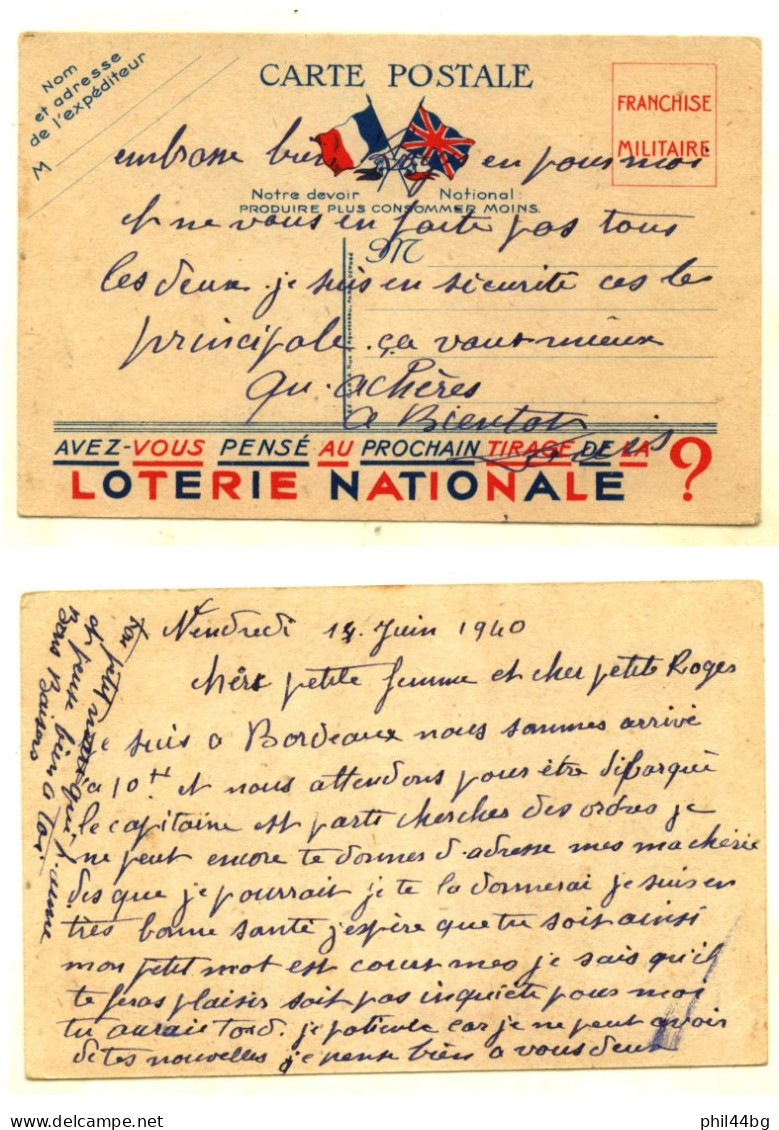 Nom
et adresse
de l'expéditeur
M
CARTE POSTALE
FRANCHISE
MILITAIRE
Notre devoir National :
PRODUIRE PLUS CONSOMMER MOINS.
M
embrasse bien en pour moi
et ne vous en faite pas tous
les deux je suis en sécurité ces le
principale. ça vaut mieux
qu. achères
a Bientot
AVEZ-VOUS PENSÉ AU PROCHAIN TIRAGE DE LA
LOTERIE NATIONALE ?
Vendredi 14 Juin 1940
chère petite femme et cher petite Roger
Je suis a Bordeaux nous sommes arrivé
a 10H et nous attendons pour être débarqué
le capitaine est parti chercher des ordres je
ne peut encore te donner d. adresse mes ma chérie
des que je pourrait je te la donnerai je suis en
très bonne santé j'espère que tu soit ainsi
mon petit mot est court mes je sais qu'il
te feras plaisir soit pas inquiète pour moi
tu aurait tord. je car je ne peut avoir
de tes nouvelles je pense bien a vous deux
Ton petit qui t'aime
et pense bien a toi.
Bons Baisers
phil44bg